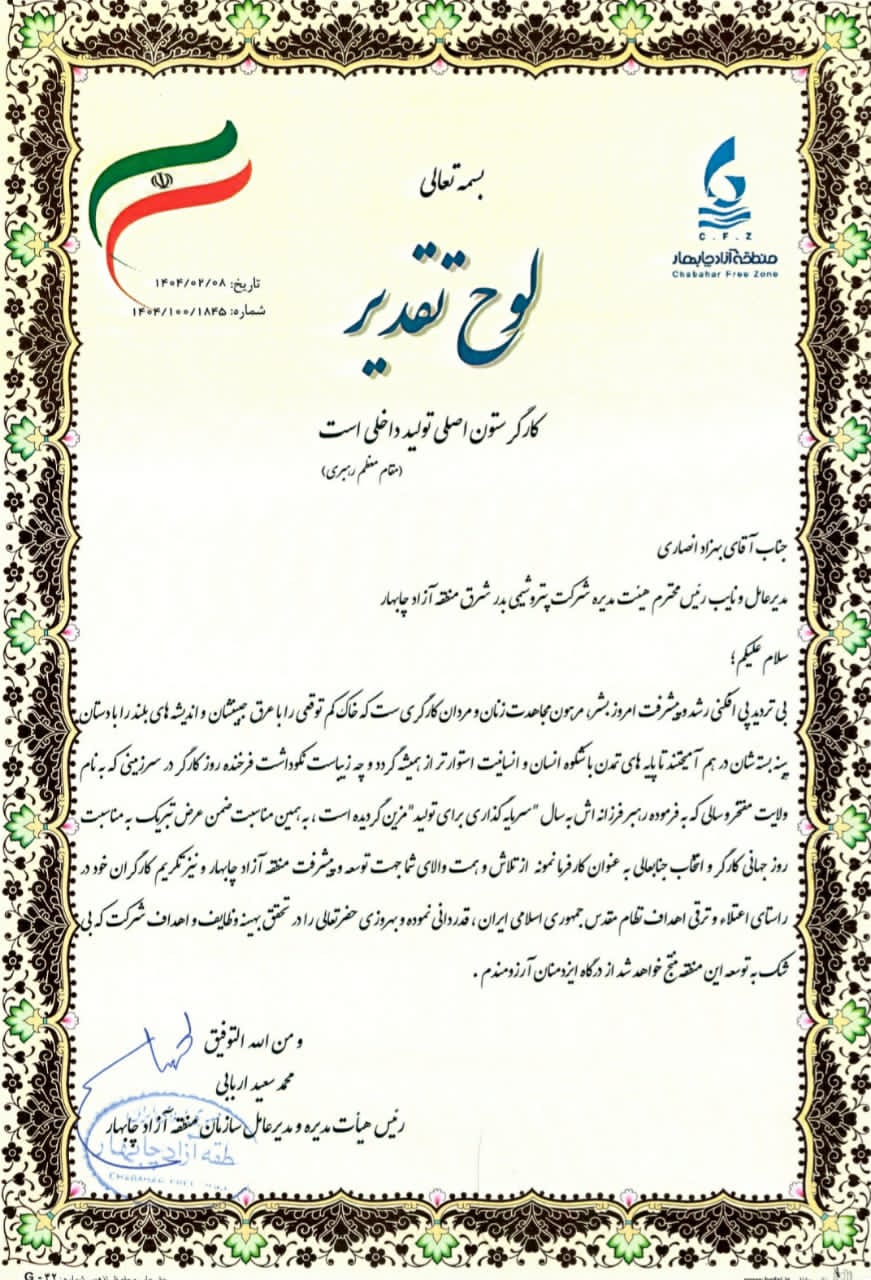 بسمه تعالی
C . F . Z
منطقه آزاد چابهار
Chabahar Free Zone
تاریخ: ۱۴۰۴/۰۲/۰۸
شماره: ۱۴۰۴/۱۰۰/۱۸۴۵
لوح تقدیر
کارگر ستون اصلی تولید داخلی است
(مقام معظم رهبری)
جناب آقای بهزاد انصاری
مدیرعامل و نایب رئیس محترم هیئت مدیره شرکت پتروشیمی بدر شرق منطقه آزاد چابهار
سلام علیکم؛
بی تردید پی افکنی رشد و پیشرفت امروز بشر، مرهون مجاهدت زنان و مردان کارگری ست که خاک کم توقعی را با عرق جبینشان و اندیشه های بلند را با دستان
پینه بسته شان در هم آمیختند تا پایه های تمدن با شکوه انسان و انسانیت استوارتر از همیشه گردد و چه زیباست نکوداشت فرخنده روز کارگر در سرزمینی که به نام
ولایت مفتخر و سالی که به فرموده رهبر فرزانه اش به سال "سرمایه گذاری برای تولید" مزین گردیده است، به همین مناسبت ضمن عرض تبریک به مناسبت
روز جهانی کارگر و انتخاب جنابعالی به عنوان کارفرما نمونه از تلاش و همت والای شما جهت توسعه و پیشرفت منطقه آزاد چابهار و نیز تکریم کارگران خود در
راستای اعتلاء و ترقی اهداف نظام مقدس جمهوری اسلامی ایران، قدردانی نموده و بهروزی حضرتعالی را در تحقق بهینه وظایف و اهداف شرکت که بی
شک به توسعه این منطقه منتج خواهد شد از درگاه ایزدمنان آرزومندم .
و من الله التوفیق
محمد سعید اربابی
رئیس هیأت مدیره و مدیرعامل سازمان منطقه آزاد چابهار
طقه آزاد چابهار
CHABAHAR FREE
G - ۳۲